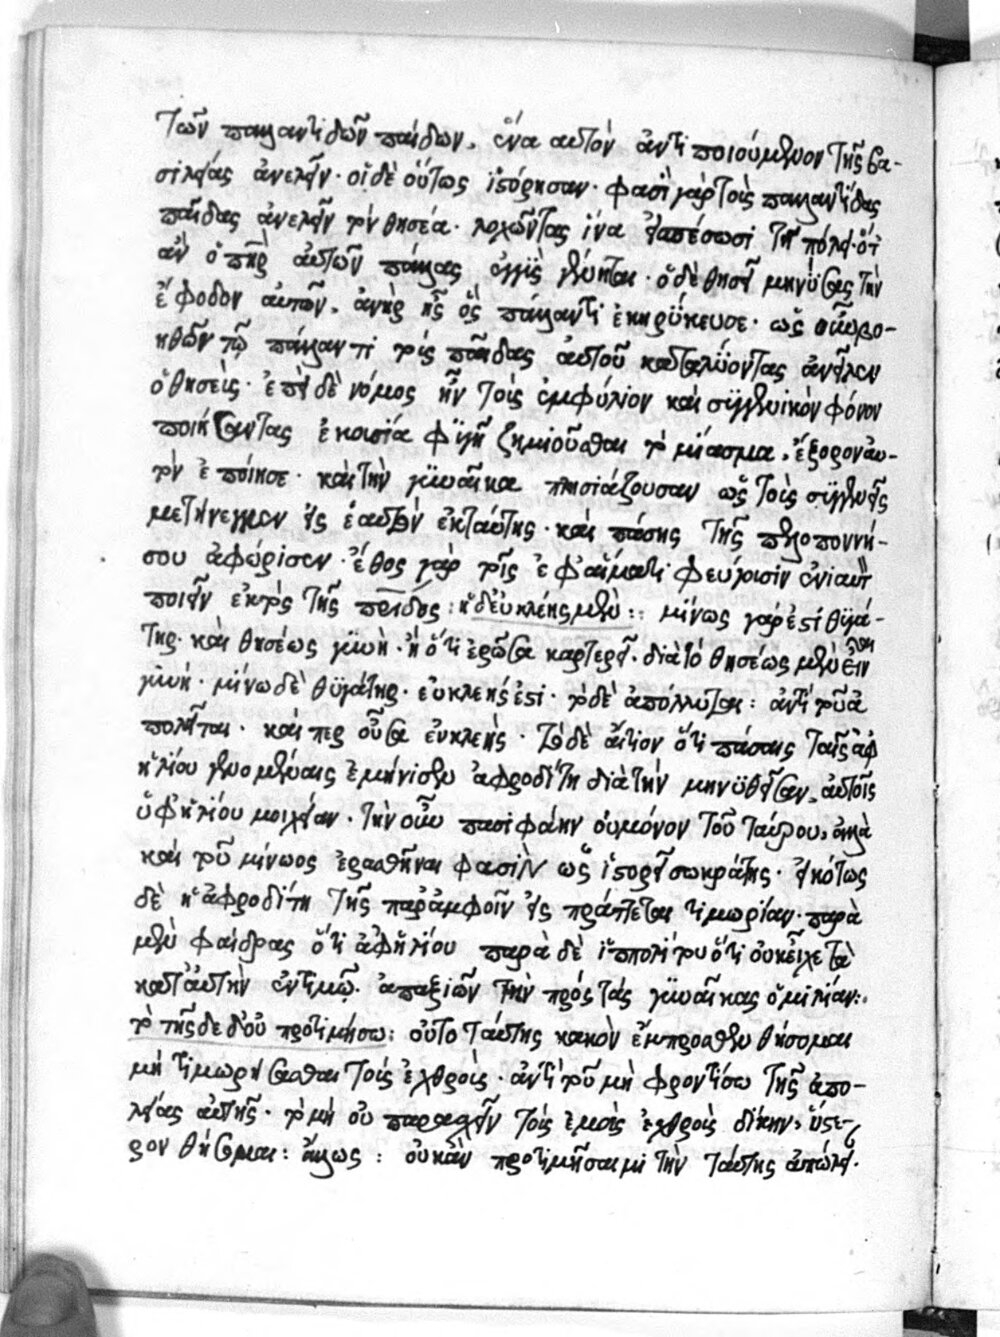 τῶν παλαντιδῶν παίδων. ἕνα αὐτὸν ἀντιποιούμενον τῆς βα-
σιλείας ἀνελεῖν· οἱ δὲ οὕτως ἱστόρησαν· φασὶ γὰρ τοὺς παλαντίδας
παῖδας ἀνελεῖν τὸν θησέα· λοχῶντας ἵνα τῇ πόλει· ὅτ
ἂν ὁ πὴρ αὐτῶν πάλλας ἐγγὺς γένηται· ὁ δὲ θησεὺς μηνύσας τὴν
ἔφοδον αὐτῶν. ἀνὴρ ἧς ὃς πάλαντι ἐκηρύκευσε· ὡς
τῷ πάλαντι τοὺς παῖδας αὐτοῦ καταλύοντας ἀνεῖλεν
ὁ θησεύς· ἐπεὶ δὲ νόμος ἦν τοῖς ἐμφύλιον καὶ συγγενικὸν φόνον
ποιήσαντας ἐκουσία φυγῇ ζημιοῦσθαι τὸ μίασμα. ἐξορον αὑ-
τὸν ἐποίησε· καὶ τὴν γυναῖκα πλησιάζουσαν ὡς τοῖς συγγενεῖς
μετήνεγκεν εἰς ἑαυτὸν ἐκ ταύτης· καὶ πάσης τῆς πελοποννή-
σου ἀφώρισεν· ἔθος γὰρ τοῖς ἐφ' αἵματι φεύγουσιν ἐνιαυτ
ποιεῖν ἐκτὸς τῆς πρίδος: ἡ δ' εὐκλεὴς μὲν: μίνως γάρ ἐστι θυγά-
τηρ· καὶ θησέως γυνὴ· ἢ ὅτι ἐρῶσα καρτερεῖ· διὰ τὸ θησέως μὲν εἶν
γυνή· μίνω δὲ θυγάτηρ· εὐκλεής ἐστι· τὸ δὲ ἀπόλλυται: ἀντὶ τοῦ ἀ
πολεῖται· καί περ οὖσα εὐκλεής· τὸ δὲ αἴτιον ὅτι πάσαις ταῖς ἀφ
ἡλίου γενομέναις ἐμήνισεν ἀφροδίτη διὰ τὴν μηνυθεῖσαν. αὐτοῖς
ὑφ' ἡλίου μοιχείαν· τὴν οὖν πασιφάην οὐ μόνον τοῦ ταύρου. ἀλλὰ
καὶ τοῦ μίνωος ἐρασθῆναι φασὶν ὡς ἱστορεῖ σωκράτης· εἰκότως
δὲ ἡ ἀφροδίτη τῆς παρ' ἀμφοῖν εἰς πράττεται τιμωρίαν· παρὰ
μὲν φαίδρας ὅτι ἀφ' ἡλίου παρὰ δὲ ἱππολύτου ὅτι οὐκ εἶχε τὰ
κατ' αὐτὴν ἐν τιμῷ. ἀπαξιῶν τὴν πρὸς τὰς γυναῖκας ὁμιλίαν:.
τὸ τῆσδε δ' οὐ προτιμήσω: οὐ τὸ ταύτης κακὸν ἔμπροσθεν θήσομαι
μὴ τιμωρήσασθαι τοὺς ἐχθρούς· ἀντὶ τοῦ μὴ φροντίσω τῆς ἀπω-
λείας αὐτῆς· τὸ μὴ οὐ παρασχεῖν τοὺς ἐμοὺς ἐχθροὺς δίκην. ὕστε-
ρον θήσομαι: ἄλλως: οὐκ ἂν προτιμήσαιμι τὴν ταύτης ἀπώλει·